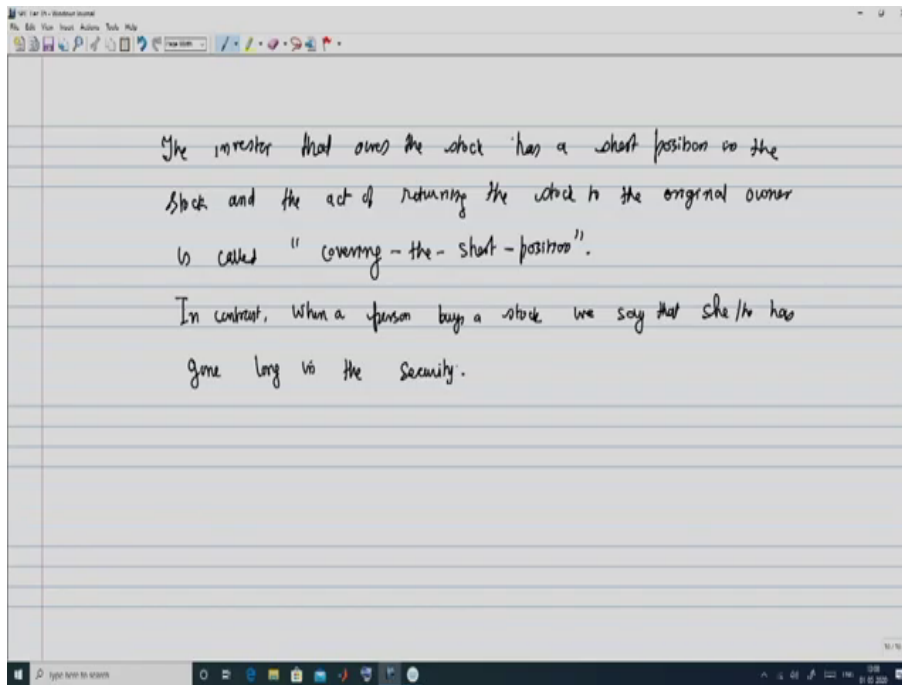 File Edit View Insert Actions Tools Help
Page Width
The investor that owes the stock has a short position in the
stock and the act of returning the stock to the original owner
is called "covering-the-short-position".
In contrast, when a person buys a stock we say that she/he has
gone long in the security.
Type here to search